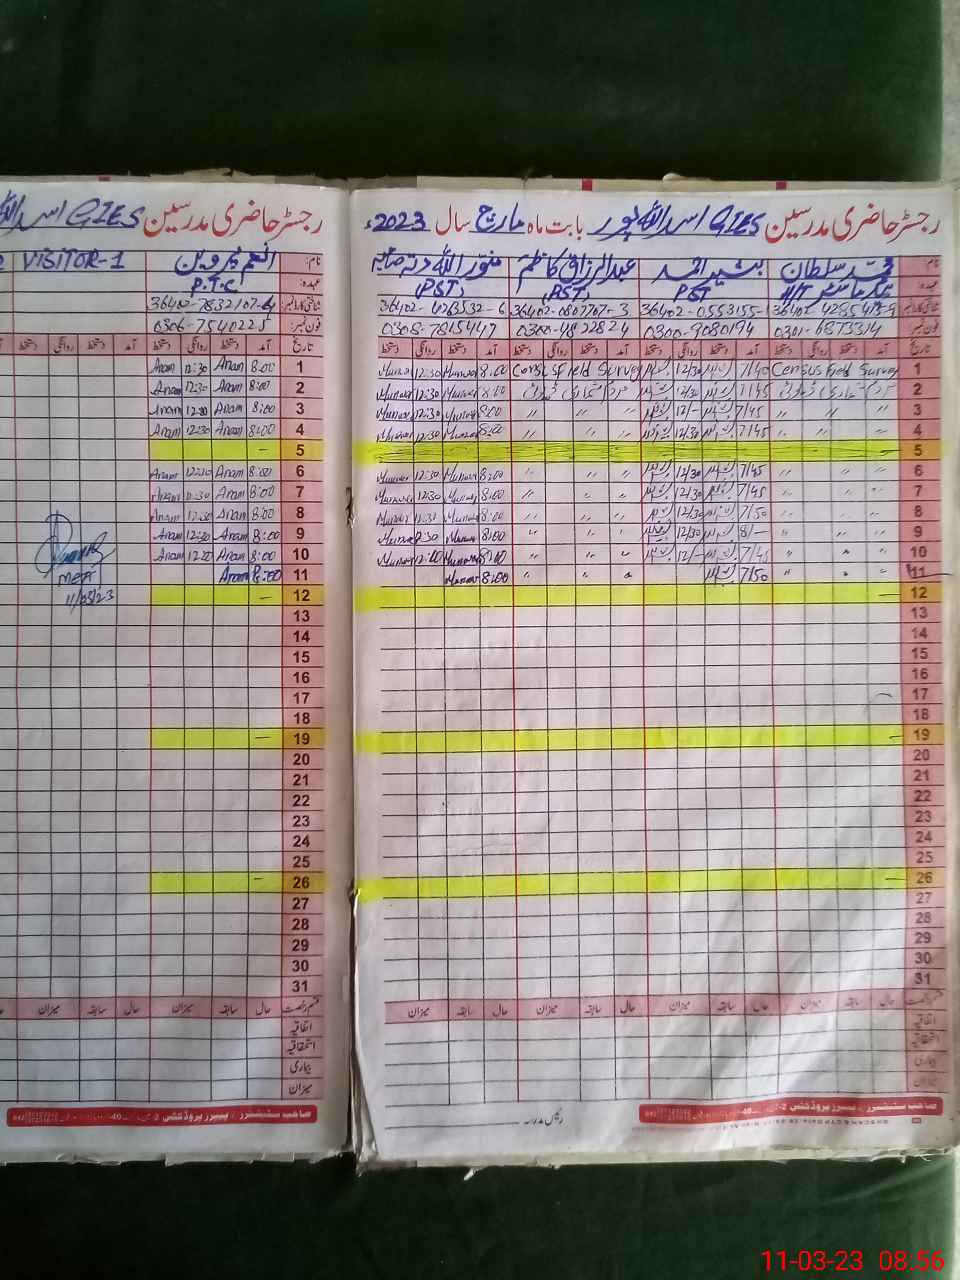 رجسٹر حاضری مدرسین GIES اسد اللہ پور بابت ماہ مارچ سال 2023ء
نام: محمد سلطان بشیر احمد عبدالرزاق کاظم منور اللہ دتہ صابر
عہدہ: H/T ہیڈ ماسٹر PST (PST) (PST)
شناختی کارڈ نمبر: 36402-0553155-1 36402-0807707-3 36402-4263532-6
فون نمبر: 0301-6873314 0300-9080194 0300-4822824 0308-7815447
تاریخ آمد دستخط روانگی دستخط آمد دستخط روانگی دستخط آمد دستخط روانگی دستخط آمد دستخط روانگی دستخط
1 Census Field Survey 7/40 12/30 Census Field Survey 8:00 Munawar 12:30 Munawar
2 7/45 12/30 8:00 Munawar 12:30 Munawar
3 〃 〃 〃 7/45 12/- 〃 〃 〃 8:00 Munawar 12:30 Munawar
4 〃 〃 〃 7/45 12/30 〃 〃 〃 8:00 Munawar 12:30 Munawar
5
6 〃 〃 〃 7/45 12/30 〃 〃 〃 8:00 Munawar 12:30 Munawar
7 〃 〃 〃 7/45 12/30 〃 〃 〃 8:00 Munawar 12:30 Munawar
8 〃 〃 〃 7/50 12/30 〃 〃 〃 8:00 Munawar 12:30 Munawar
9 〃 〃 〃 8/- 12/30 〃 〃 〃 8:00 Munawar 12:30 Munawar
10 〃 〃 〃 7/45 12/- 〃 〃 〃 8:00 Munawar Munawar
11 〃 〃 〃 7/50 〃 〃 〃 8:00 Munawar
12
13
14
15
16
17
18
19
20
21
22
23
24
25
26
27
28
29
30
31
قسم رخصت حال سابقہ میزان حال سابقہ میزان حال سابقہ میزان حال سابقہ میزان
اتفاقیہ
استحقاقیہ
بیماری
میزان
صاحب سٹیشنرز، پیپرز پروڈکٹس
رئیس مدرسہ
رجسٹر حاضری مدرسین GIES اسد اللہ
نام: انعم پروین VISITOR-1
عہدہ: P.T.C
شناختی کارڈ نمبر: 36402-7832107-4
فون نمبر: 0306-7540225
تاریخ آمد دستخط روانگی دستخط آمد دستخط روانگی دستخط
1 8:00 Anam 12:30 Anam
2 8:00 Anam 12:30 Anam
3 8:00 Anam 12:00 Anam
4 8:00 Anam 12:30 Anam
5
6 8:00 Anam 12:30 Anam
7 8:00 Anam 12:30 Anam
8 8:00 Anam 12:30 Anam
9 8:00 Anam 12:30 Anam
10 8:00 Anam 12:00 Anam
11 8:00 Anam
MEA
11/03/23
12
13
14
15
16
17
18
19
20
21
22
23
24
25
26
27
28
29
30
31
قسم رخصت حال سابقہ میزان حال سابقہ میزان
اتفاقیہ
استحقاقیہ
بیماری
میزان
صاحب سٹیشنرز، پیپرز پروڈکٹس
11-03-23 08:56